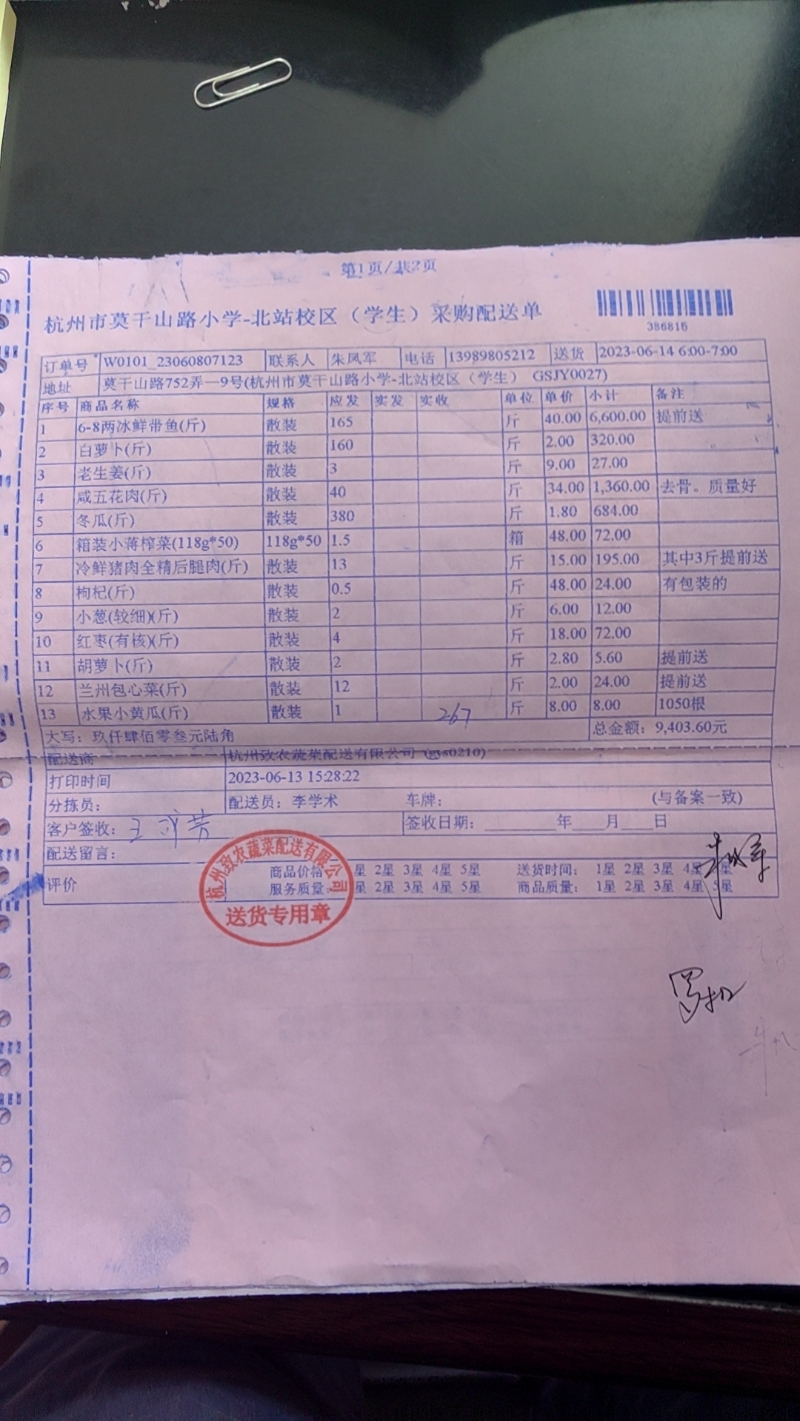 第1页/共2页
杭州市莫干山路小学-北站校区（学生）采购配送单
386816
订单号 W0101_23060807123 联系人 朱凤军 电话 13989805212 送货 2023-06-14 6:00-7:00
地址 莫干山路752弄一9号(杭州市莫干山路小学-北站校区（学生） GSJY0027)
序号 商品名称 规格 应发 实发 实收 单位 单价 小计 备注
1 6-8两冰鲜带鱼(斤) 散装 165 斤 40.00 6,600.00 提前送
2 白萝卜(斤) 散装 160 斤 2.00 320.00
3 老生姜(斤) 散装 3 斤 9.00 27.00
4 咸五花肉(斤) 散装 40 斤 34.00 1,360.00 去骨。质量好
5 冬瓜(斤) 散装 380 斤 1.80 684.00
6 箱装小蒋榨菜(118g*50) 118g*50 1.5 箱 48.00 72.00
7 冷鲜猪肉全精后腿肉(斤) 散装 13 斤 15.00 195.00 其中3斤提前送
8 枸杞(斤) 散装 0.5 斤 48.00 24.00 有包装的
9 小葱(较细)(斤) 散装 2 斤 6.00 12.00
10 红枣(有核)(斤) 散装 4 斤 18.00 72.00
11 胡萝卜(斤) 散装 2 斤 2.80 5.60 提前送
12 兰州包心菜(斤) 散装 12 斤 2.00 24.00 提前送
13 水果小黄瓜(斤) 散装 1 267 斤 8.00 8.00 1050根
大写：玖仟肆佰零叁元陆角 总金额：9,403.60元
配送商 杭州致农蔬菜配送有限公司 (gys0210)
打印时间 2023-06-13 15:28:22
分拣员： 配送员：李学术 车牌： (与备案一致)
客户签收： 签收日期：________年____月____日
配送留言：
评价 商品价格 星 2星 3星 4星 5星 送货时间： 1星 2星 3星 4星 星
服务质量： 星 2星 3星 4星 5星 商品质量： 1星 2星 3星 4星 5星
杭州致农蔬菜配送有限公司
送货专用章